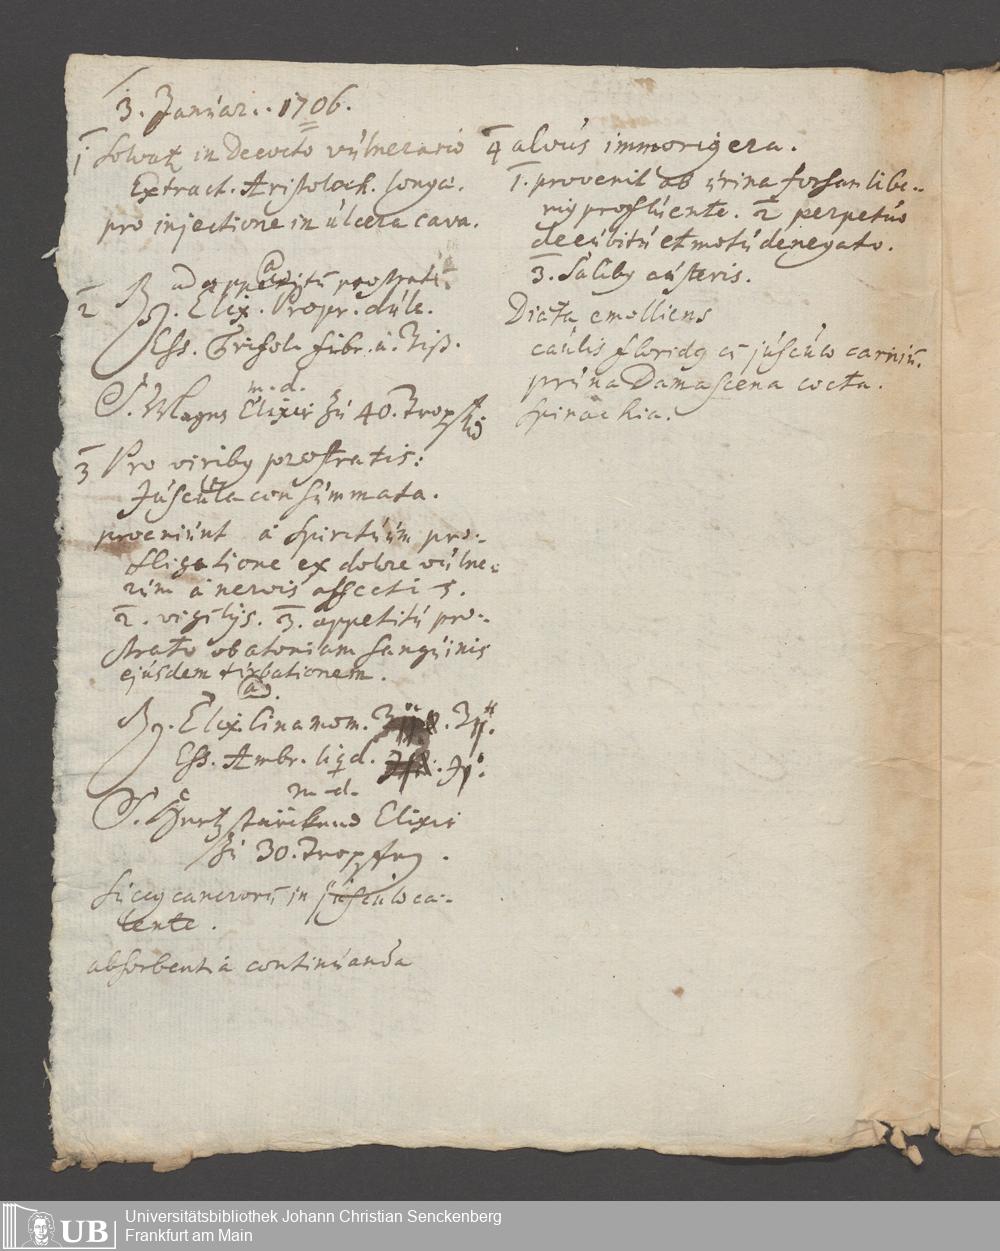 3. Januar.. 1706.
1 Solvat~ in Decocto vulnerario
Extract. Aristoloch. longa.
pro injectione in ulcera cava.
2 ad appetitū prostratū
℞. Elix. Propr. dulc.
Ess. Trifol. fibr. a. ʒiß.
m. d.
S. Magen Elixir zu 40. Tropffen
3 Pro viribus prostratis:
Juscula consummata.
proveniunt a Spirituum pro-
fligatione ex dolore vulne-
rum a nervis affecti 1.
2. vigilijs. 3. appetitu pro-
strato ob atoniam sanguinis
ejusdem turbationem.
℞. Elix. Cinamom. ʒij.
Ess. Ambr. liqd. ʒj.
m. d.
S. Hertz stärckend Elixir
zu 30. Tropffen.
Succus cancrorū in jusculo ca-
lente.
absorbentia continuanda
4 alvus immorigera.
1. provenit ab urina forsan libe-
rius profluente. 2 perpetuo
decubitu et motu denegato.
3. Salibus austeris.
Diæta emolliens
caulis floridus cū jusculo carniū.
pruna Damascena cocta.
Spinachia.
Universitätsbibliothek Johann Christian Senckenberg
Frankfurt am Main
UB